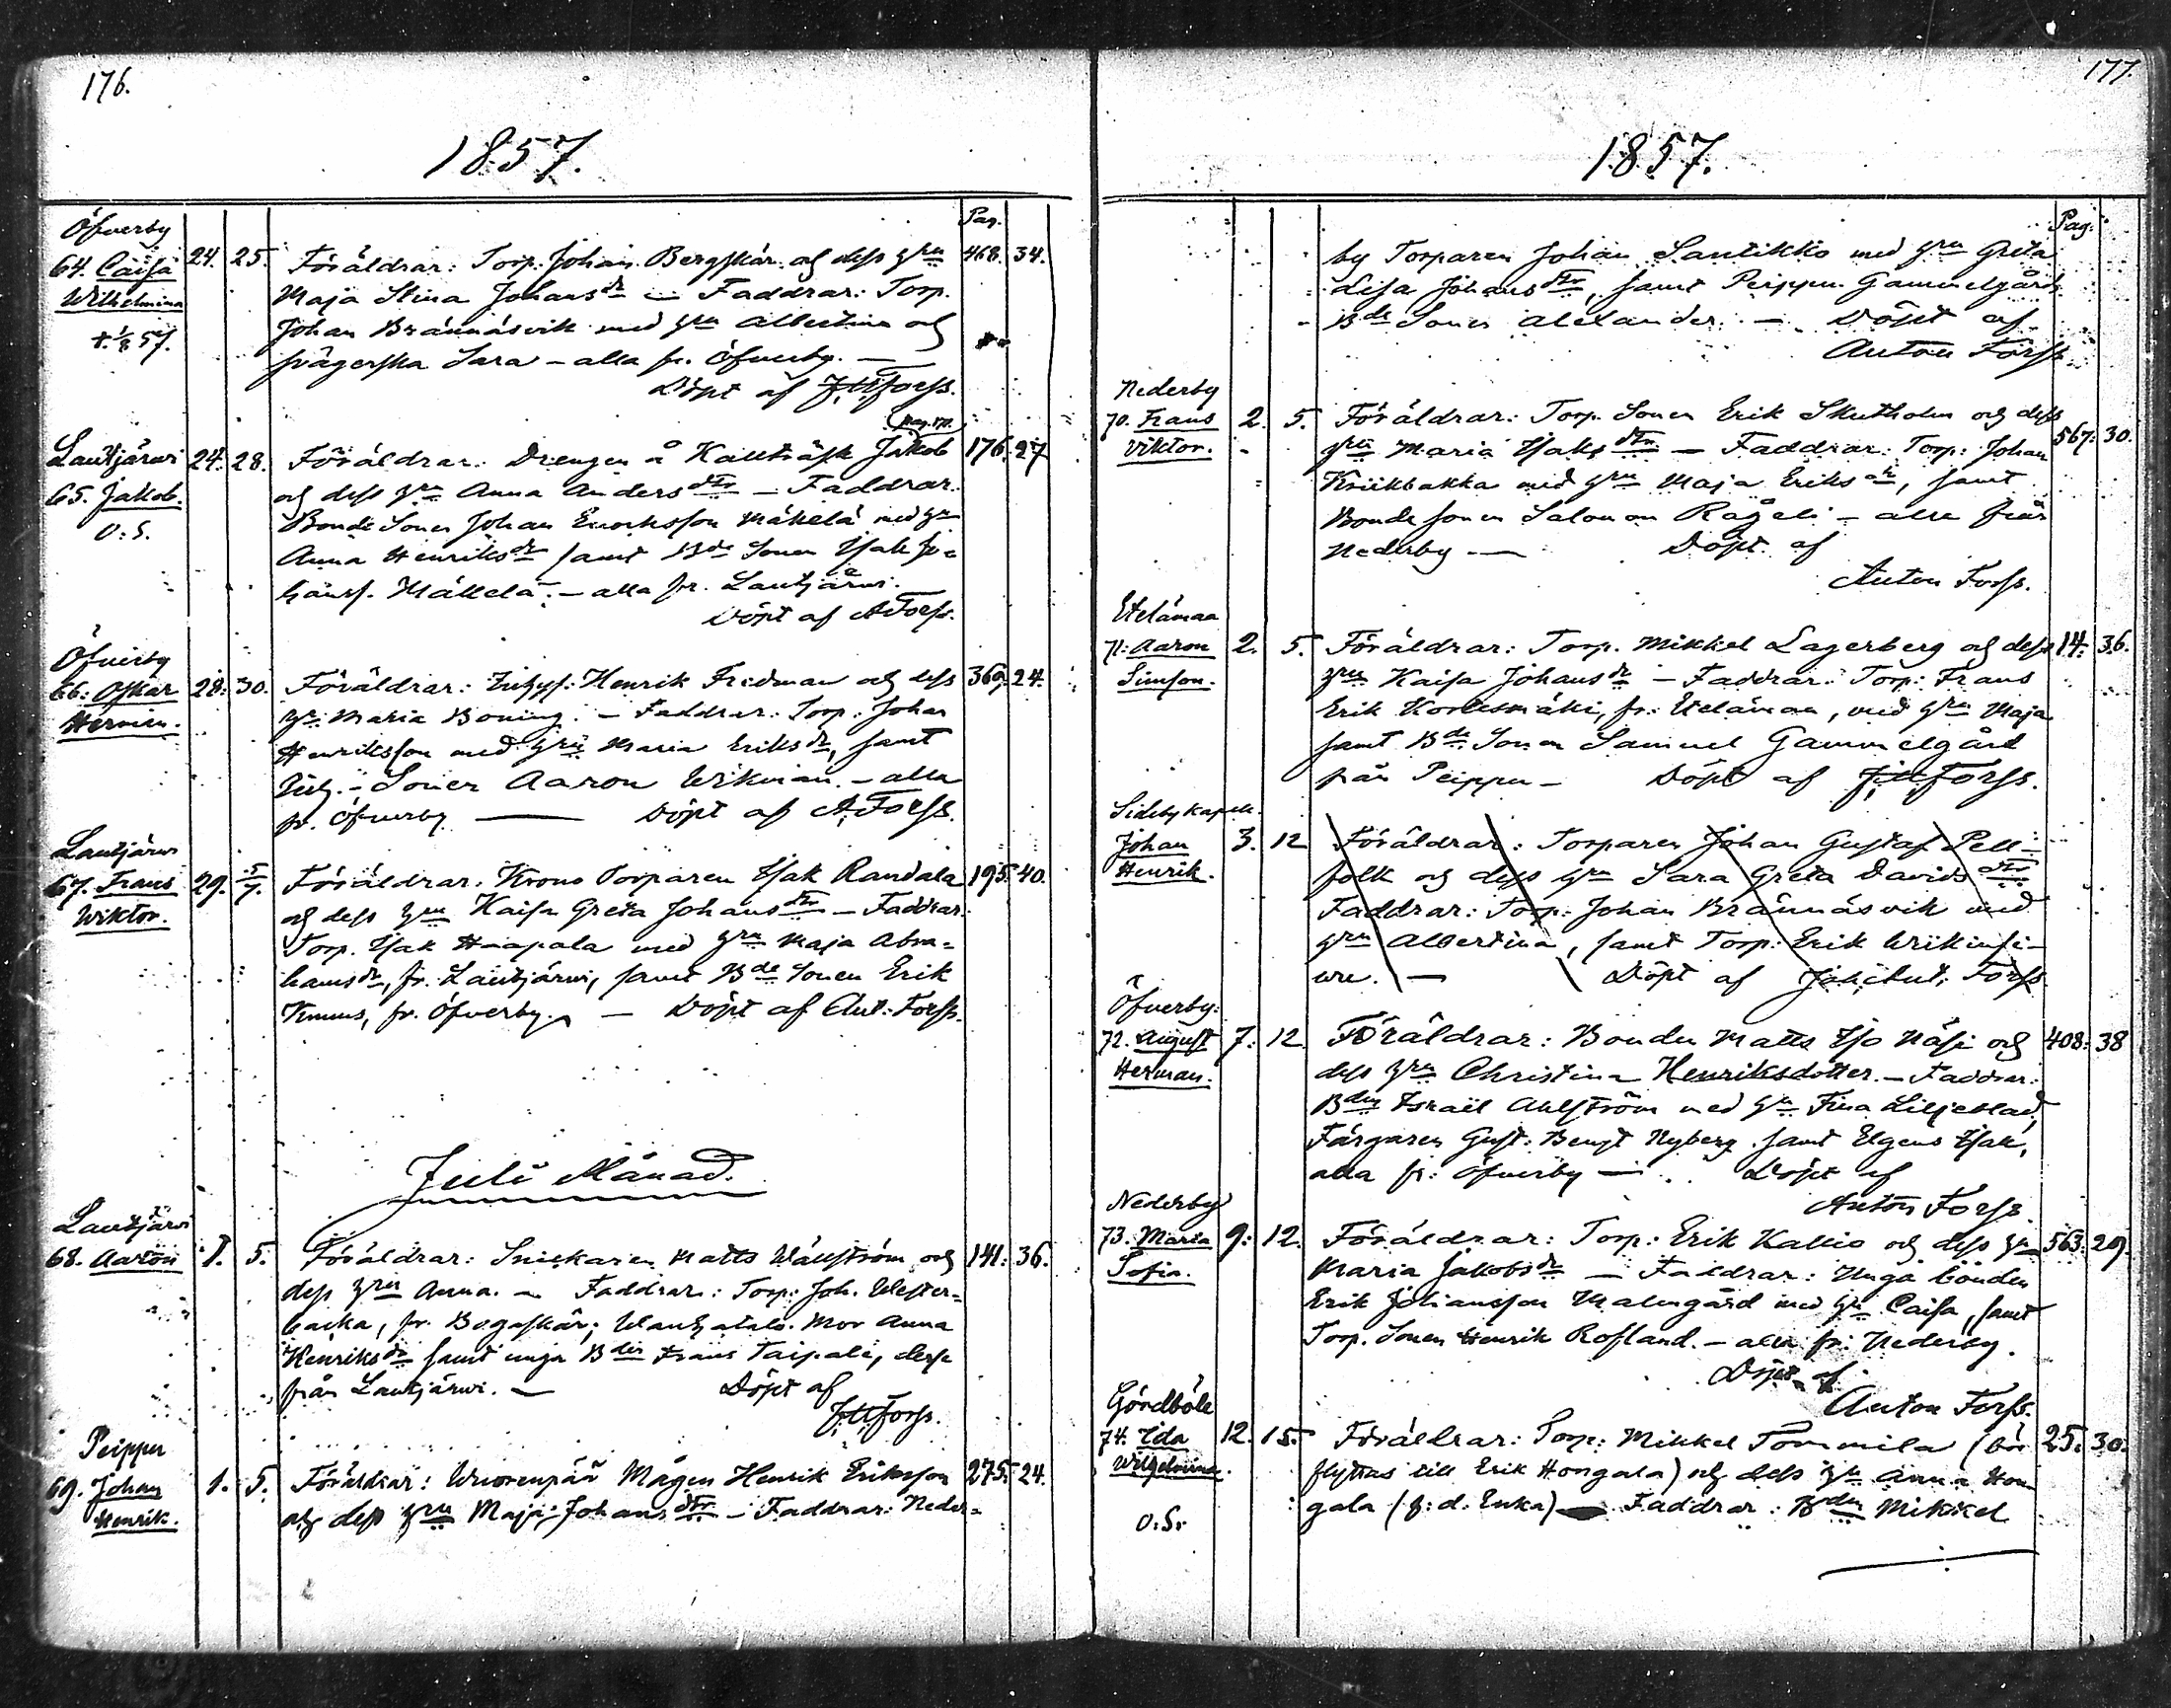 176.
1857.
Pag.
Öfverby
64. Caisa 24. 25. Föräldrar: Torp. Johan Bergskär och dess hru 468. 34.
Wilhelmina Maja Stina Johansdr — Faddrar: Torp.
†. 1/8 57. Johan Brännäsvik med hru Albertina och
svägerska Sara – alla fr. Öfverby. —
Döpt af Forss.
Pag. 170.
Lautjärwi 24. 28. Föräldrar: Drengen å Kallträsk Jakob 176. 27
65. Jakob. och dess hru Anna Andersdtr — Faddrar:
O: S. Bonde Sonen Johan Mäkelä med hru
Anna Henriksdr samt Bde Sonen Isak Jo-
hanss. Mäkelä. – alla fr. Lautjärwi.
Döpt af A Forss.
Öfverby
66: Oskar 28. 30. Föräldrar: Henrik Fridman och dess 369. 24.
Herman. hru Maria Boning. – Faddrar: Torp. Johan
Henriksson med hru Maria Eriksdr, samt
Sonen Aaron Wikman. – alla
fr. Öfverby — Döpt af A. Forss.
Lautjärwi
67. Frans 29. 5/7. Föräldrar: Krono Torparen Isak Randala 195. 40.
Wiktor. och dess hru Kaisa Greta Johansdtr – Faddrar:
Torp. Isak Haapala med hru Maja Abra-
hamsdr, fr. Lautjärwi, samt Bde Sonen Erik
Kmuus, fr. Öfverby. — Döpt af Ant: Forss.
Juli Månad.
Lautjärwi
68. Aaron 1. 5. Föräldrar: Snickaren Matts Wällström och 141. 36.
dess hru Anna. — Faddrar: Torp: Joh. Wester-
backa, fr. Bogaskär; Mor Anna
Henriksdr samt unga Bden Frans Taipale, desse
från Lautjärwi. — Döpt af
Forss.
Peippu
69. Johan 1. 5. Föräldrar: Mågen Henrik Eriksson 275. 24.
Henrik. och dess hru Maja Johansdtr – Faddrar: Neder-
177.
1857.
Pag.
by Torparen Johan Santikko med hru Greta
Lisa Johansdtr, samt Peippu Gammelgårds
Bde Sonen Alexander. — Döpt af
Anton Forss
Nederby
70. Frans 2. 5. Föräldrar: Torp. Sonen Erik Skutholm och dess 567. 30.
Viktor. hru Maria Isaksdtr — Faddrar: Torp: Johan
Kriikbakka med hru Maja Eriksdr, samt
Bonde sonen Salomon Rågeli – alla från
Nederby — Döpt af
Anton Forss.
Etelämaa
71: Aaron 2. 5. Föräldrar: Torp. Mikkel Lagerberg och dess 14. 36.
Simson. hru Kaisa Johansdr – Faddrar: Torp: Frans
Erik Korkesmäki, fr. Etelämaa, med hru Maja
samt Bde Sonen Samuel Gammelgård
från Peippu – Döpt af Forss.
Sideby Kapell.
Johan 3. 12 Föräldrar: Torparen Johan Gustaf Pell-
Henrik. folk och dess hru Sara Greta Davidsdtr
Faddrar: Torp: Johan Brännäsvik med
hru Albertina, samt Torp: Erik
— Döpt af Forss
Öfverby:
72. August 7. 12 Föräldrar: Bonden Matts Iso Näsi och 408. 38
Herman. dess hru Christina Henriksdotter. – Faddrar:
Bden Israël Ahlström med hru Fina Liljeblad,
Färgaren Gust: Bengt Nyberg samt Elgens Isak,
alla fr: Öfverby — Döpt af
Anton Forss.
Nederby
73. Maria 9: 12. Föräldrar: Torp: Erik Kallio och dess hru 563. 29.
Sofia. Maria Jakobsdr — Faddrar: Unga bonden
Erik Johansson Malmgård med hru Caisa, samt
Torp. Sonen Henrik Rosland. – alla fr: Nederby.
Döpt af
Anton Forss.
Gördböle
74. Ida 12. 15. Föräldrar: Torp: Mikkel Tommila (bör 25. 30.
Wilhelmina. flyttas till Erik Hongala) och dess hru Anna Hon
O: S. gala (f: d. Enka) — Faddrar: Bden Mikkel